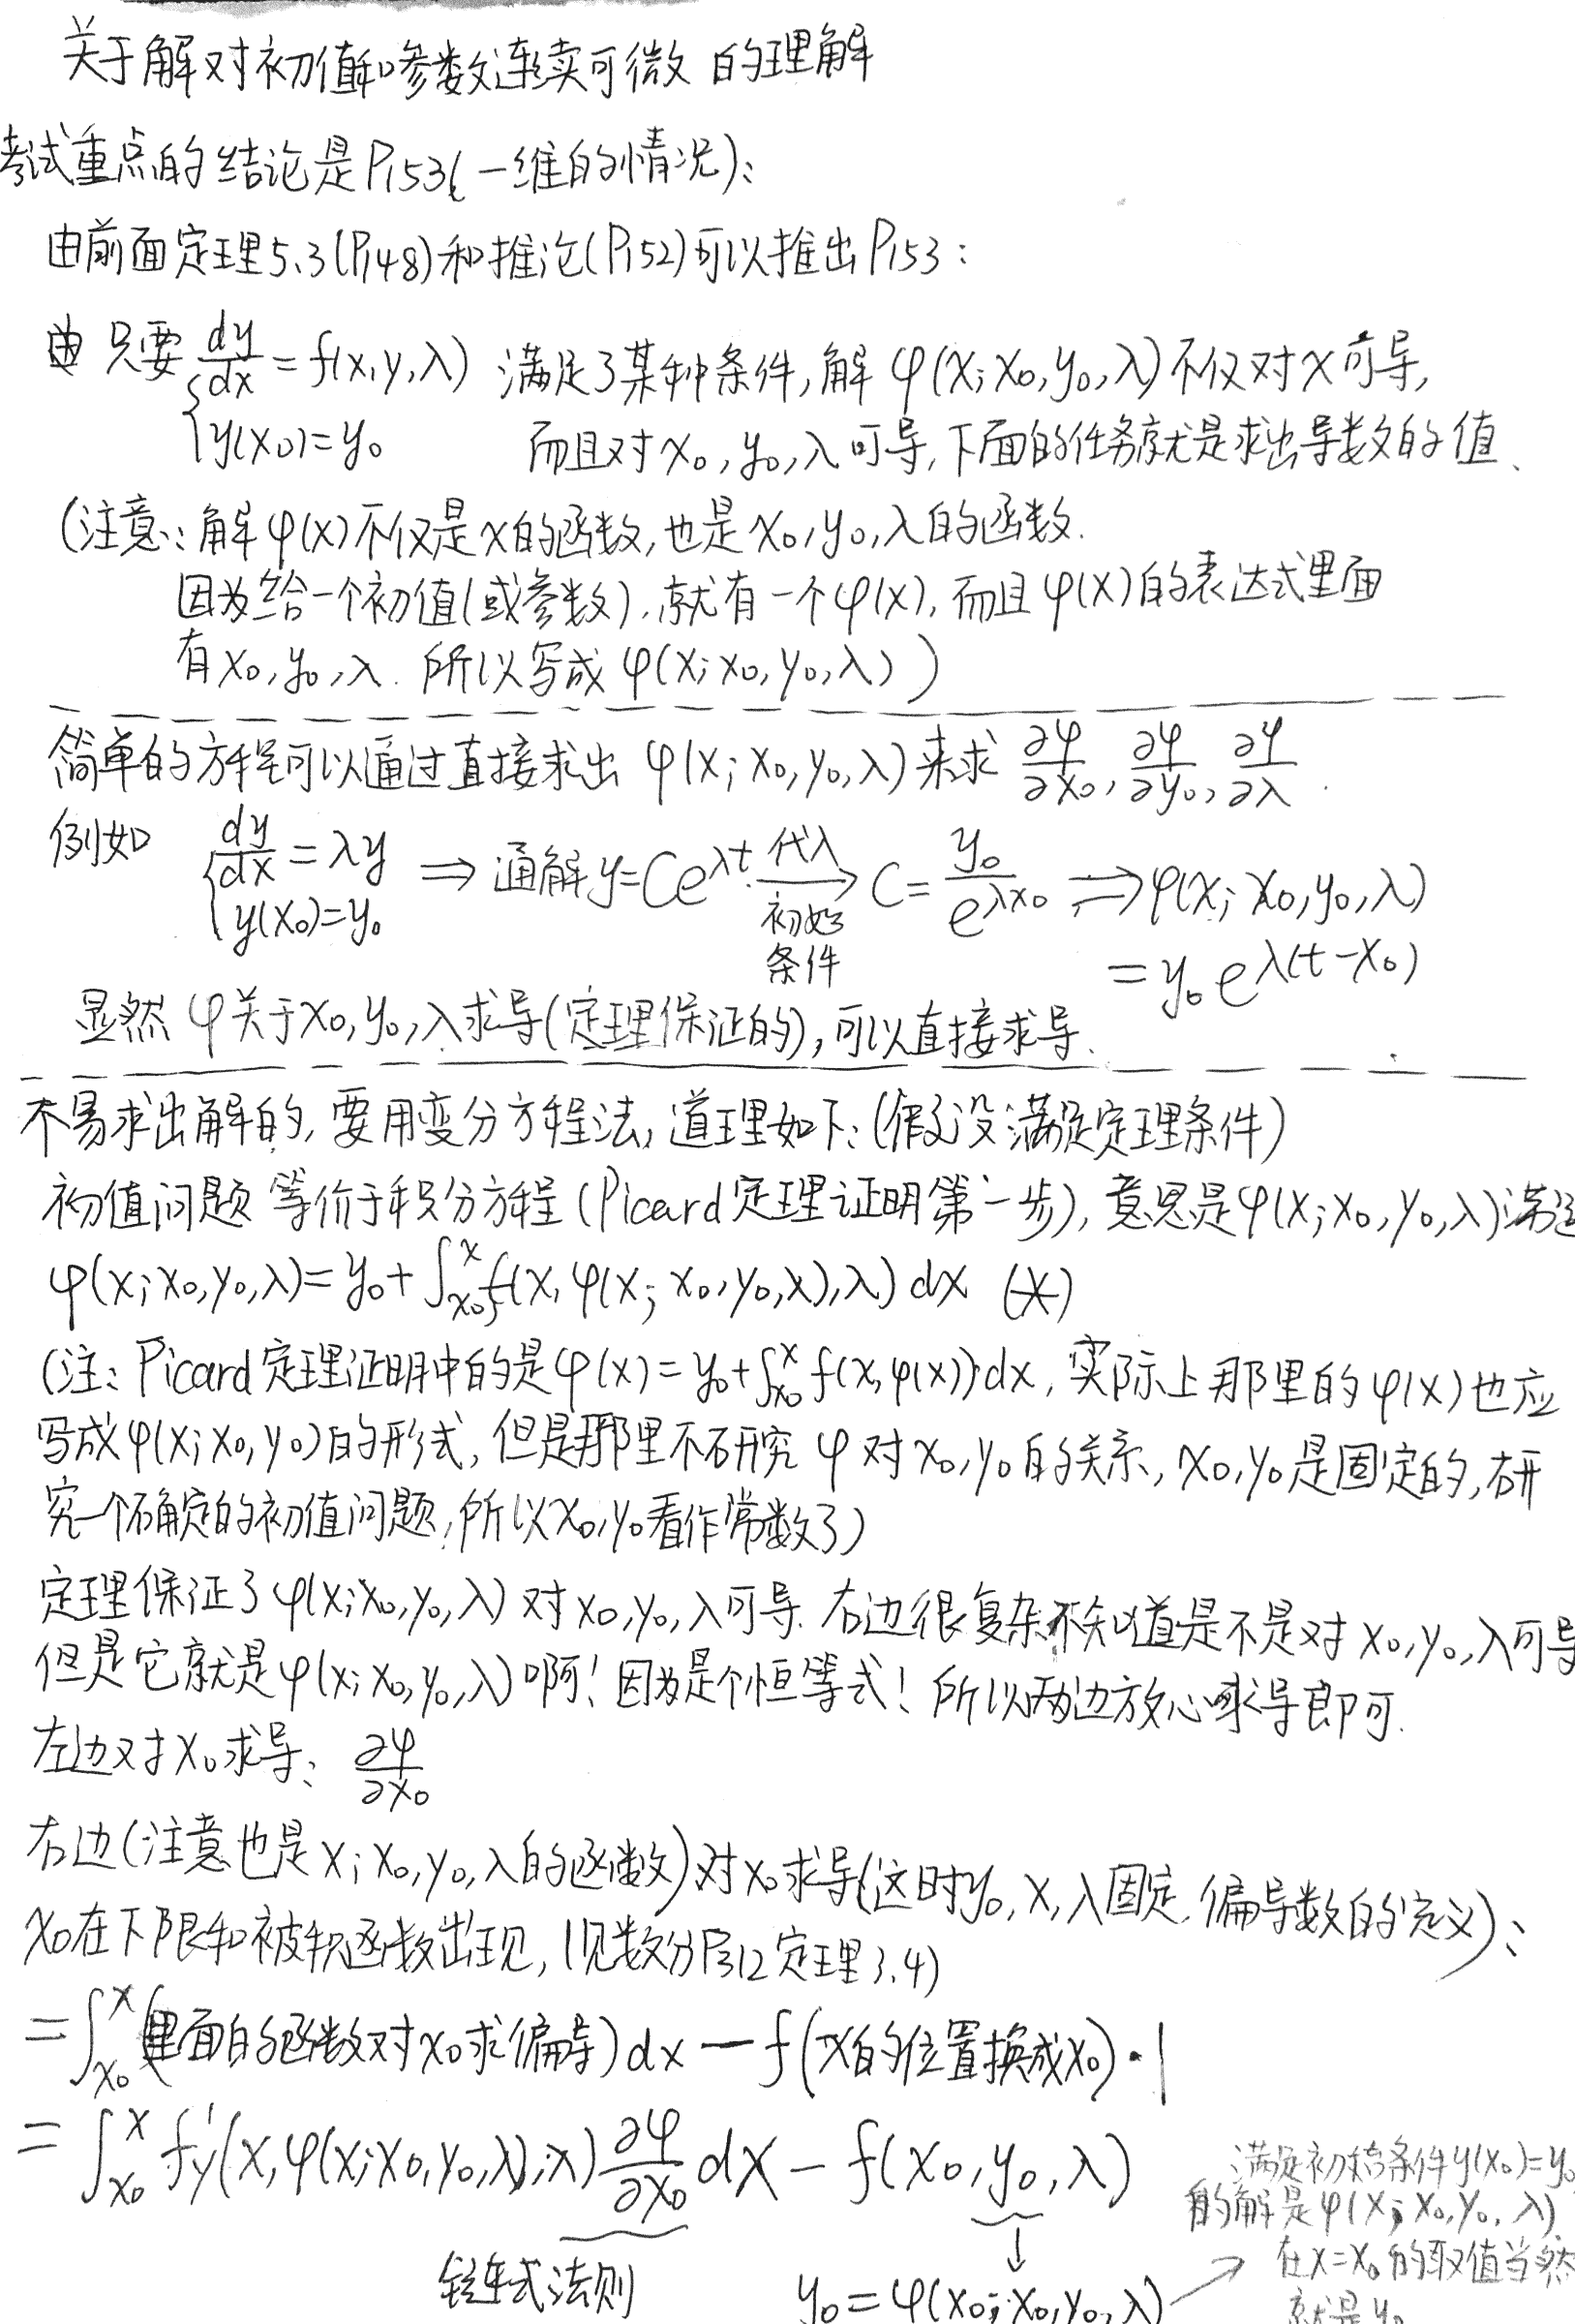 关于解对初值和参数连续可微 的理解
考试重点的结论是P153(一维的情况):
由前面定理5.3(P148)和推论(P152)可以推出P153:
只要 dy/dx = f(x,y,λ) 满足了某种条件,解 φ(x;x0,y0,λ)不仅对x可导,
y(x0)=y0 而且对x0,y0,λ可导,下面的任务就是求出导数的值.
(注意:解φ(x)不仅是x的函数,也是x0,y0,λ的函数.
因为给一个初值(或参数),就有一个φ(x),而且φ(x)的表达式里面
有x0,y0,λ. 所以写成 φ(x;x0,y0,λ))
简单的方程可以通过直接求出 φ(x;x0,y0,λ)来求 ∂φ/∂x0, ∂φ/∂y0, ∂φ/∂λ.
例如 { dy/dx = λy ⇒ 通解y=Ce^λt 代入初始条件→ C = y0/e^λx0 ⇒ φ(x;x0,y0,λ)
y(x0)=y0
= y0 e^λ(t-x0)
显然 φ关于x0,y0,λ求导(定理保证的),可以直接求导.
不易求出解的,要用变分方程法,道理如下:(假设满足定理条件)
初值问题 等价于积分方程(Picard定理证明第一步),意思是φ(x;x0,y0,λ)满足
φ(x;x0,y0,λ)=y0+∫_x0^x f(x,φ(x;x0,y0,λ),λ)dx (*)
(注:Picard定理证明中的是φ(x)=y0+∫_x0^x f(x,φ(x))dx,实际上那里的φ(x)也应
写成φ(x;x0,y0)的形式,但是那里不研究 φ 对x0,y0的关系,x0,y0是固定的,研
究一个确定的初值问题,所以x0,y0看作常数了)
定理保证了φ(x;x0,y0,λ)对x0,y0,λ可导.右边很复杂不知道是不是对x0,y0,λ可导
但是它就是φ(x;x0,y0,λ)啊!因为是个恒等式!所以两边放心求导即可.
左边对x0求导: ∂φ/∂x0
右边(注意也是x;x0,y0,λ的函数)对x0求导(这时y0,x,λ固定,偏导数的定义):
x0在下限和被积函数出现,(见数分P312定理3.4)
=∫_x0^x(里面的函数对x0求偏导)dx-f(x的位置换成x0)·1
=∫_x0^x f'y(x,φ(x;x0,y0,λ),λ)∂φ/∂x0 dx - f(x0,y0,λ)
链式法则
y0=φ(x0;x0,y0,λ)
满足初始条件y(x0)=y0
的解是φ(x;x0,y0,λ)
在x=x0的取值当然
就是y0